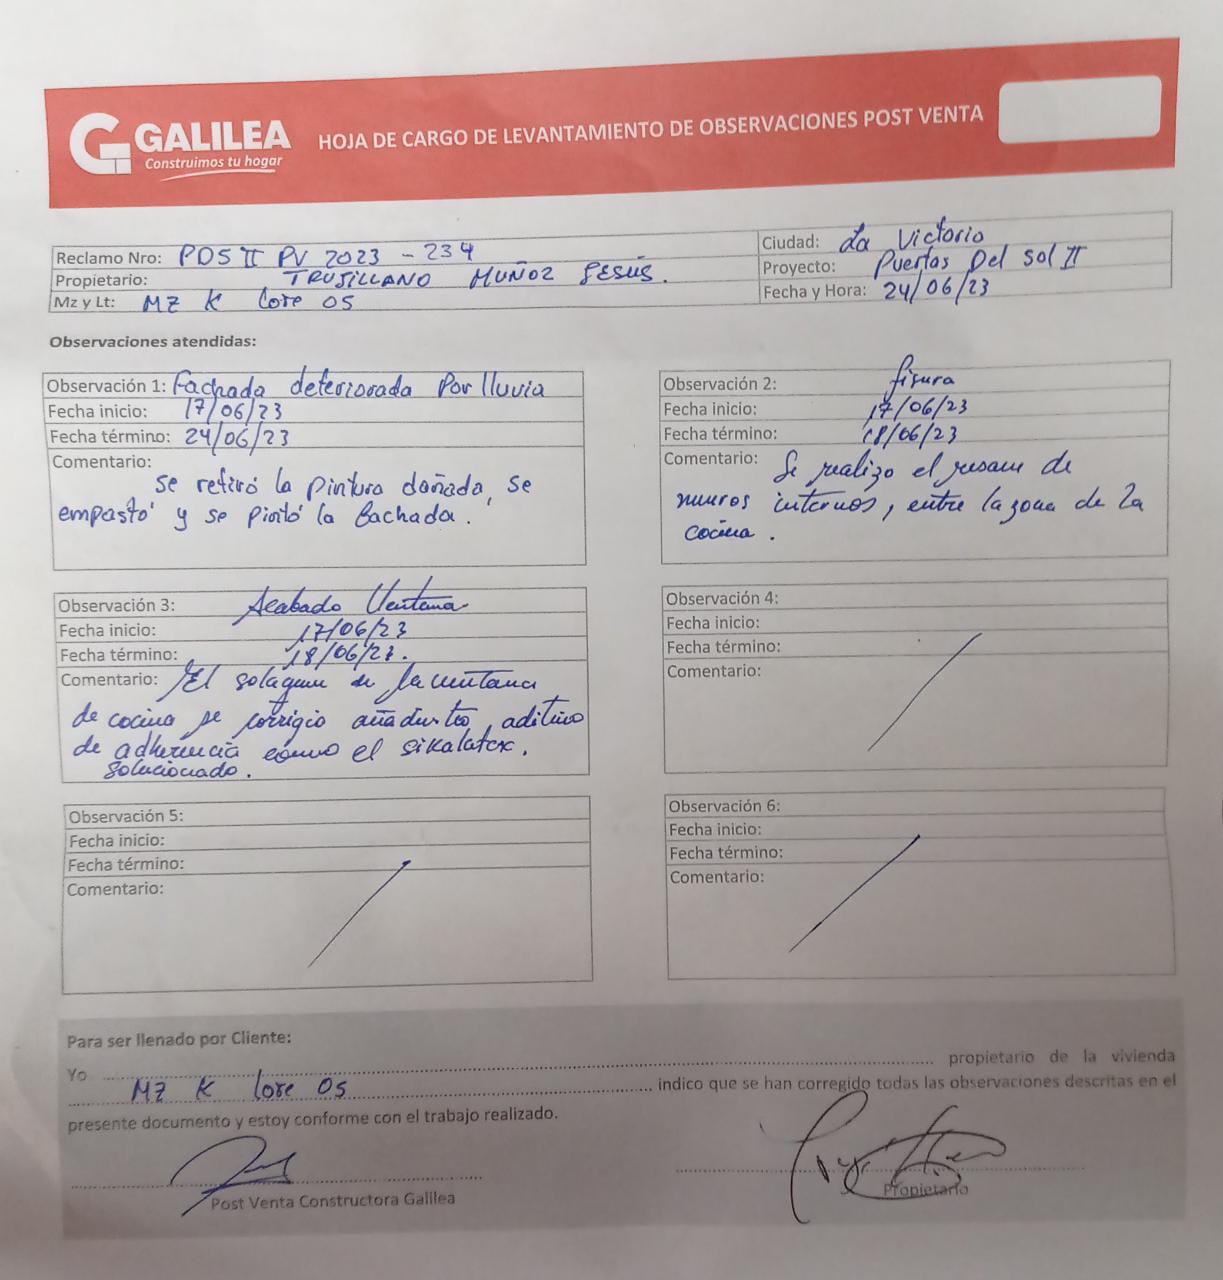 GALILEA
Construimos tu hogar
HOJA DE CARGO DE LEVANTAMIENTO DE OBSERVACIONES POST VENTA
Reclamo Nro: PDS II PV 2023 - 234
Propietario: TRUJILLANO MUÑOZ JESÚS.
Mz y Lt: MZ K lote 05
Ciudad: La Victoria
Proyecto: Puertas Del Sol II
Fecha y Hora: 24/06/23
Observaciones atendidas:
Observación 1: Fachada deteriorada Por lluvia
Fecha inicio: 17/06/23
Fecha término: 24/06/23
Comentario:
se retiró la pintura dañada, se
empastó y se pintó la fachada.
Observación 2: fisura
Fecha inicio: 17/06/23
Fecha término: 18/06/23
Comentario: Se realizo el resane de
muros internos, entre la zona de la
cocina.
Observación 3: Acabado Ventana
Fecha inicio: 17/06/23
Fecha término: 18/06/23.
Comentario: El de la ventana
de cocina se corrigio aditivo
de adherencia como el sikalatex.
solucionado.
Observación 4:
Fecha inicio:
Fecha término:
Comentario:
Observación 5:
Fecha inicio:
Fecha término:
Comentario:
Observación 6:
Fecha inicio:
Fecha término:
Comentario:
Para ser llenado por Cliente:
Yo ........ propietario de la vivienda
MZ K lote 05 ........ indico que se han corregido todas las observaciones descritas en el
presente documento y estoy conforme con el trabajo realizado.
Post Venta Constructora Galilea
Propietario